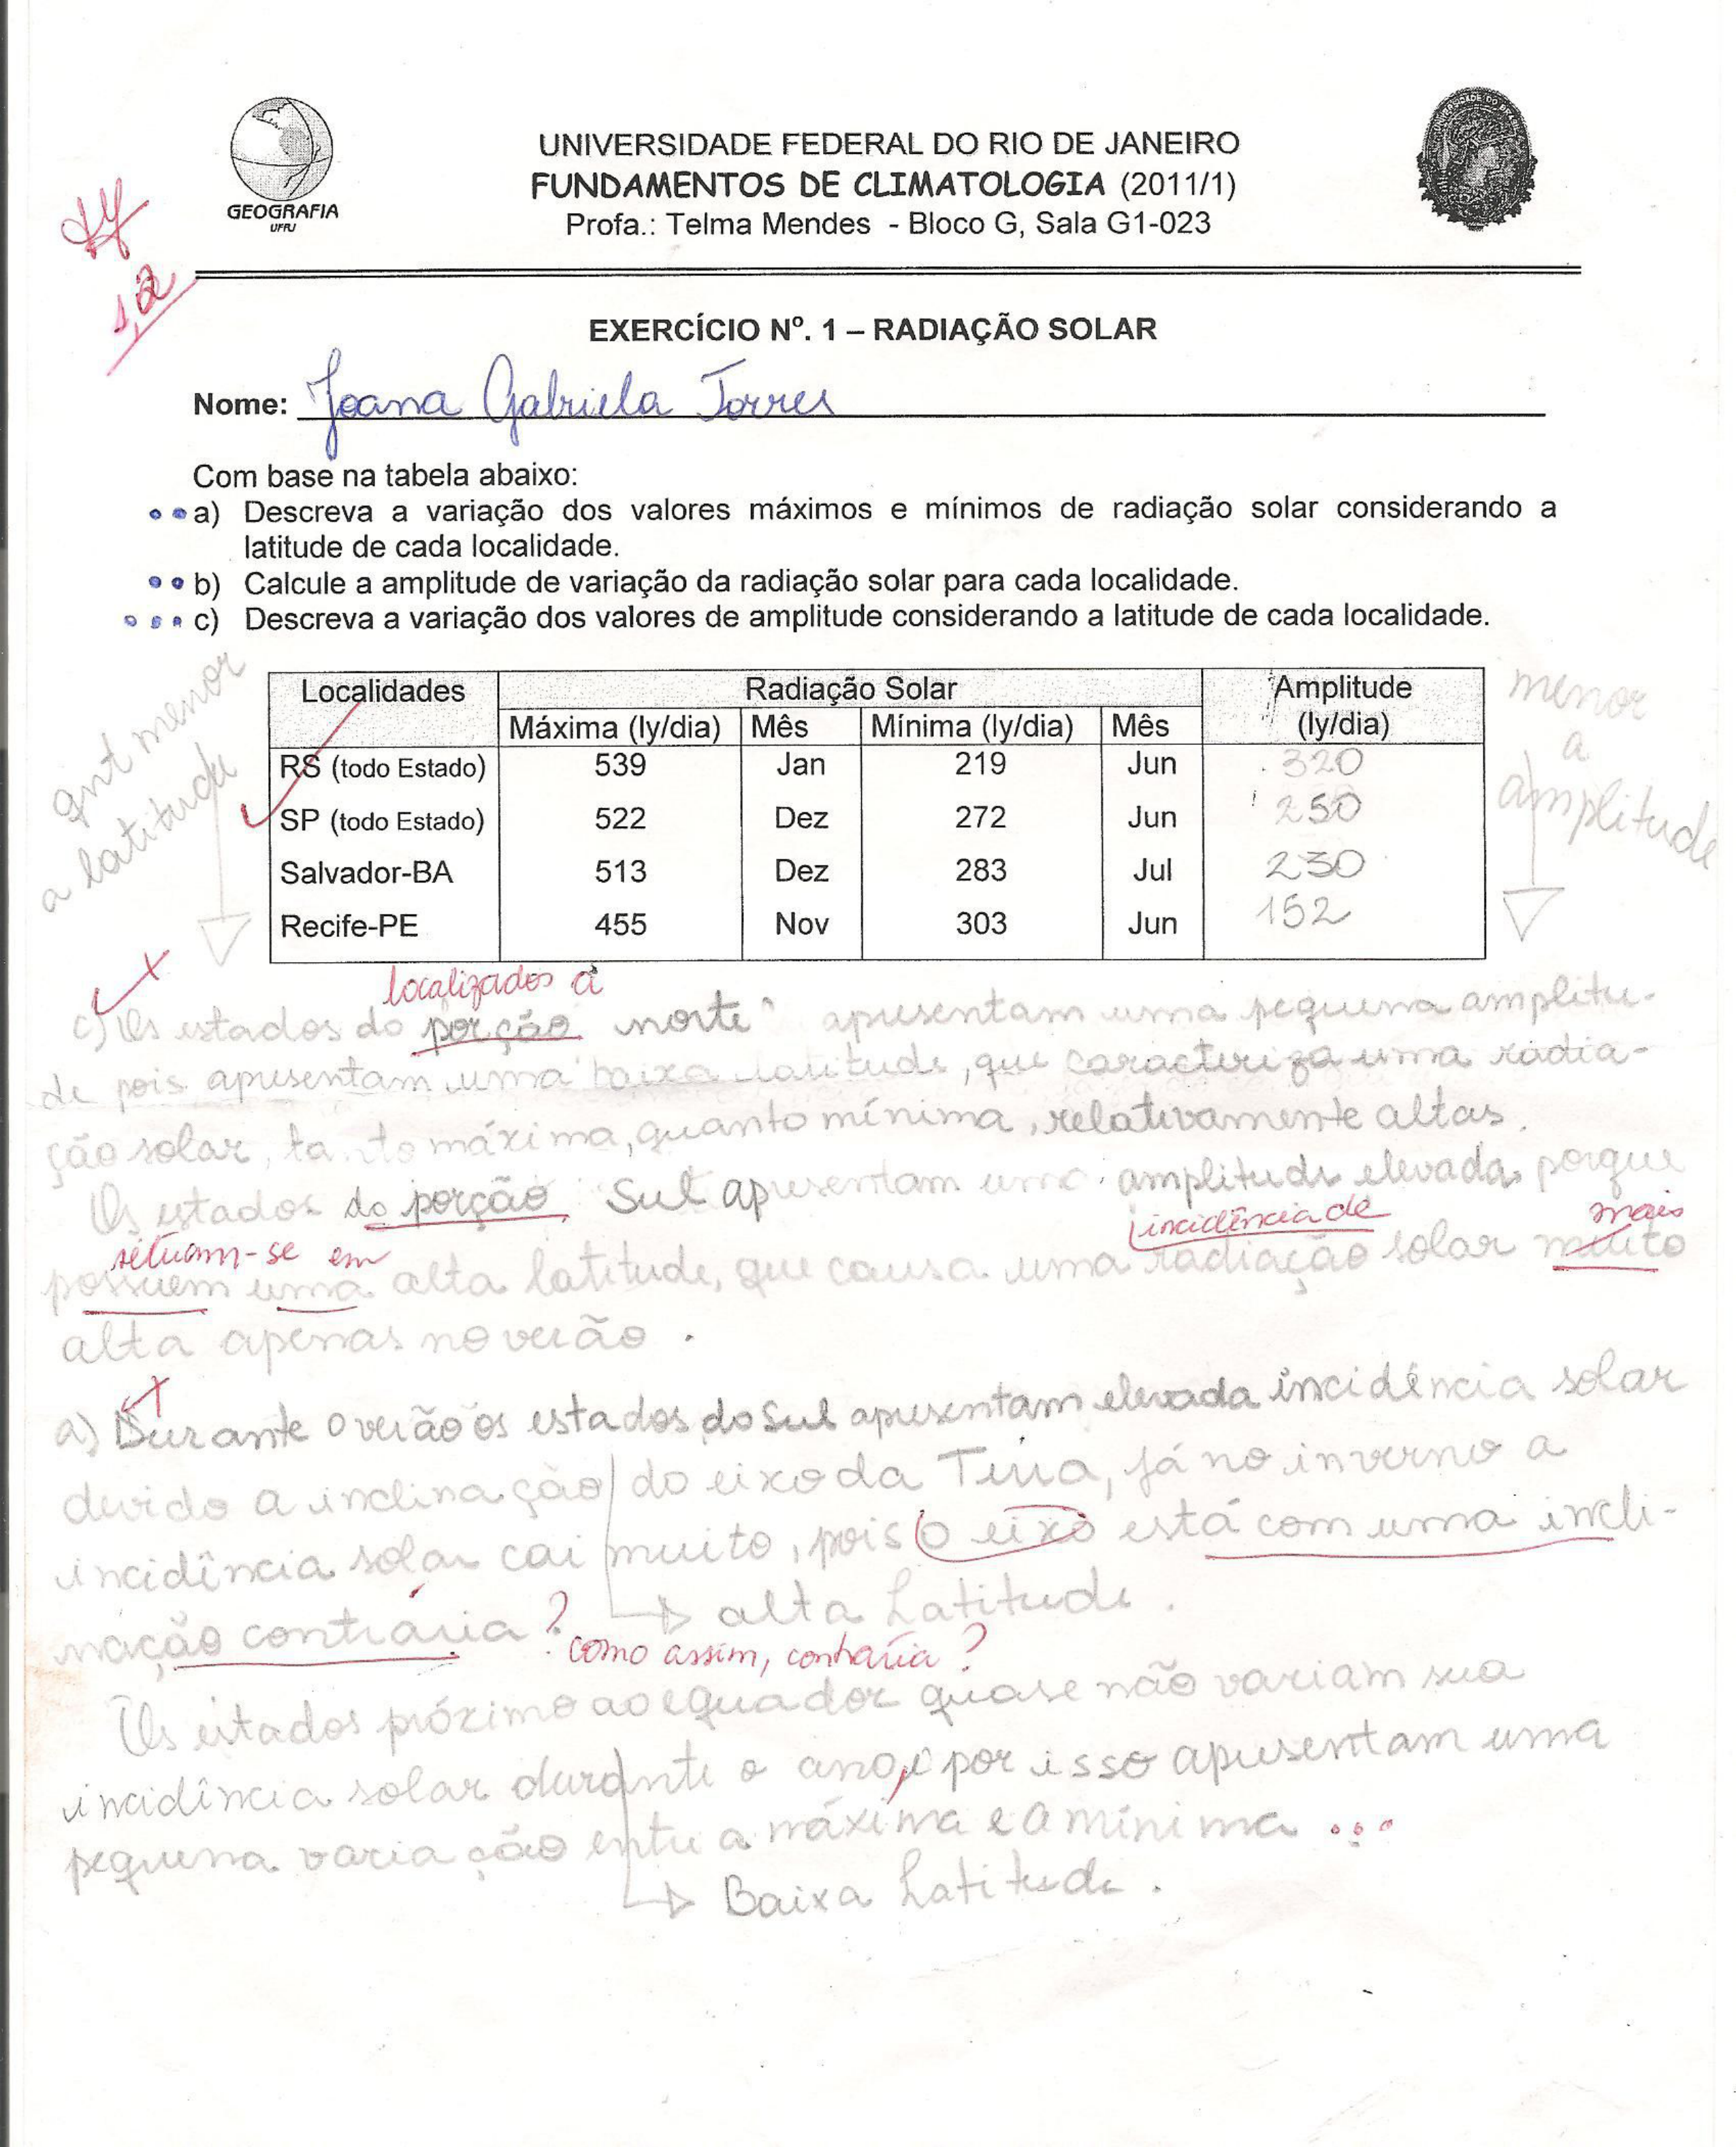 GEOGRAFIA
UFRJ
UNIVERSIDADE FEDERAL DO RIO DE JANEIRO
FUNDAMENTOS DE CLIMATOLOGIA (2011/1)
Profa.: Telma Mendes - Bloco G, Sala G1-023
1,2
EXERCÍCIO Nº. 1 – RADIAÇÃO SOLAR
Nome: Joana Gabriela Torres
Com base na tabela abaixo:
a) Descreva a variação dos valores máximos e mínimos de radiação solar considerando a
latitude de cada localidade.
b) Calcule a amplitude de variação da radiação solar para cada localidade.
c) Descreva a variação dos valores de amplitude considerando a latitude de cada localidade.
qnt menor
a latitude
menor
a
amplitude
Localidades Radiação Solar Amplitude
Máxima (ly/dia) Mês Mínima (ly/dia) Mês (ly/dia)
RS (todo Estado) 539 Jan 219 Jun 320
SP (todo Estado) 522 Dez 272 Jun 250
Salvador-BA 513 Dez 283 Jul 230
Recife-PE 455 Nov 303 Jun 152
localizados à
c) Os estados do porção norte apresentam uma pequena amplitu-
de pois apresentam uma baixa latitude, que caracteriza uma radia-
ção solar, tanto máxima, quanto mínima, relativamente altas.
Os estados do porção Sul apresentam uma amplitude elevada porque
situam-se em incidência de mais
possuem uma alta latitude, que causa uma radiação solar muito
alta apenas no verão.
a) Durante o verão os estados do Sul apresentam elevada incidência solar
devido a inclinação do eixo da Terra, já no inverno a
incidência solar cai muito, pois o eixo está com uma incli-
nação contrária? → alta Latitude.
como assim, contrária?
Os estados próximo ao equador quase não variam sua
incidência solar durante o ano, e por isso apresentam uma
pequena variação entre a máxima e a mínima...
→ Baixa Latitude.